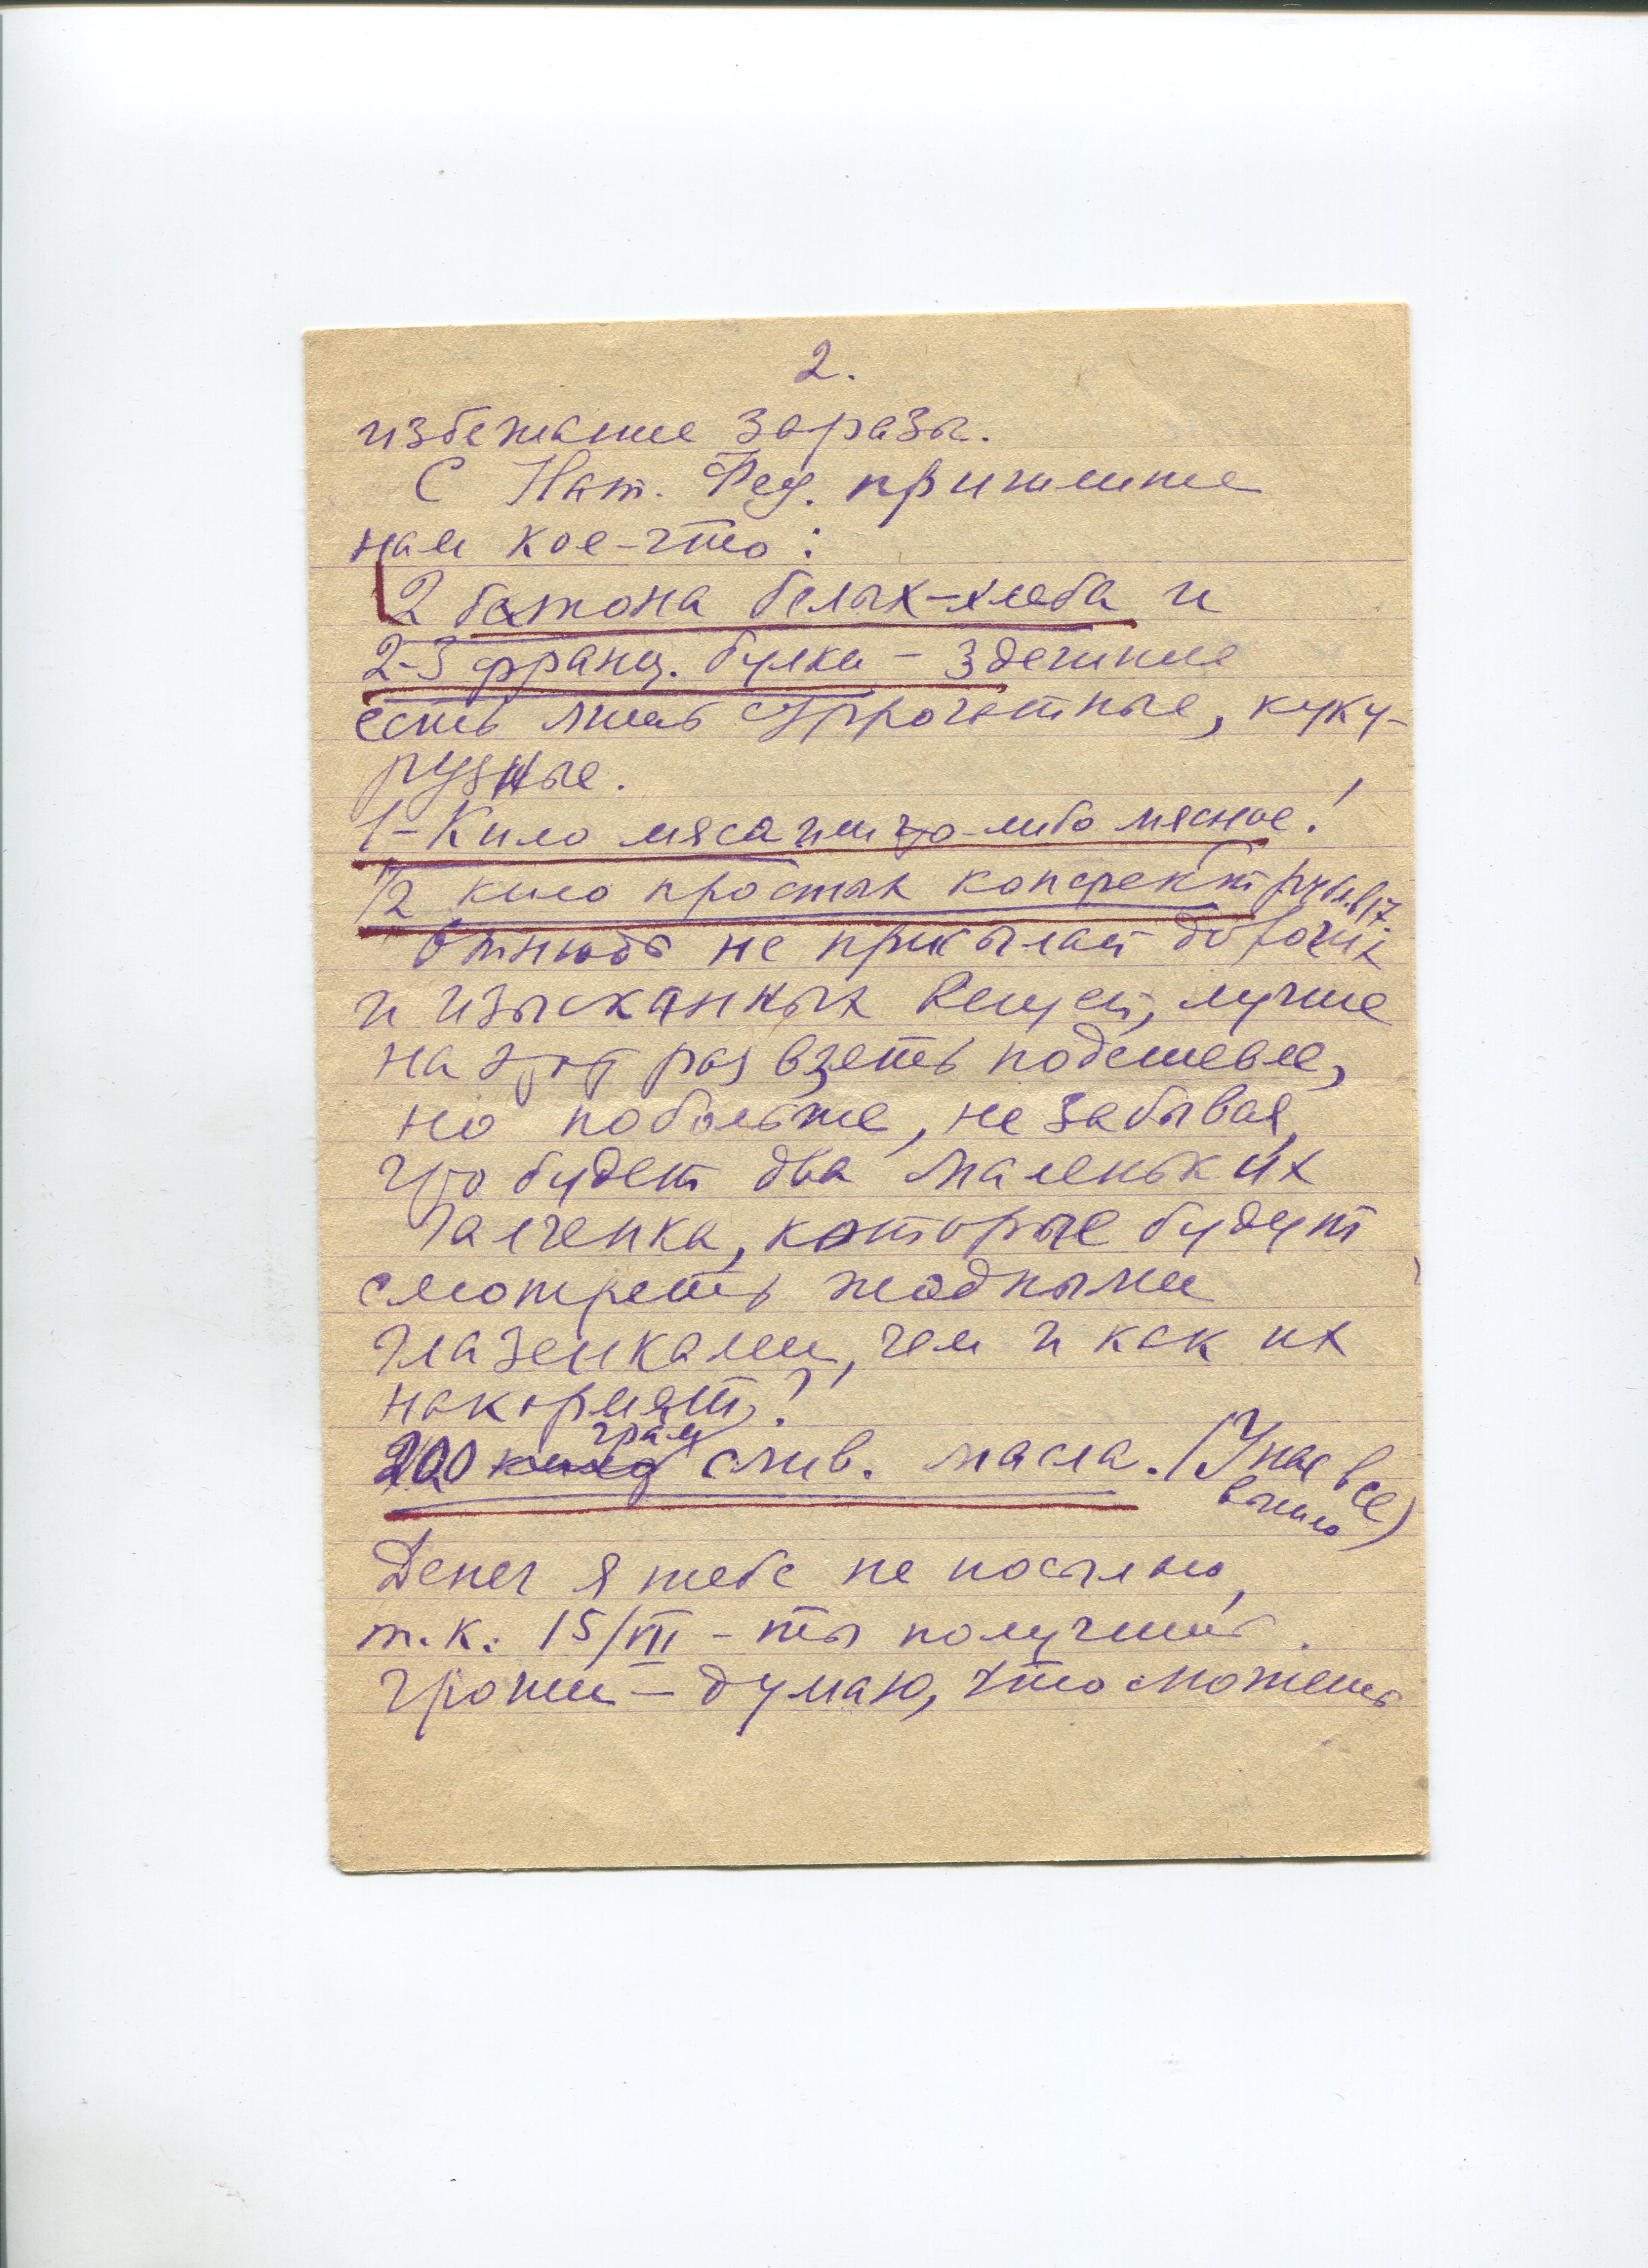 2.
избежание заразы.
С Нат. Фед. пришлите
нам кое-что:
2 батона белых-хлеба и
2-3 франц. булки - здешние
есть лишь суррогатные, куку-
рузные.
1- Кило мяса или что-либо мясное!
1/2 кило простых конфект руб. в 17
Отнюдь не присылай дорогих
и изысканных вещей, лучше
на этот раз взять подешевле,
но побольше, не забывая,
что будет два маленьких
галченка, которые будут
смотреть жадными
глазенками, чем и как их
накормят?
200 грам слив. масла. (У нас все
вышло)
Денег я тебе не посылаю,
т.к. 15/VII - ты получишь
гроши - думаю, что сможешь